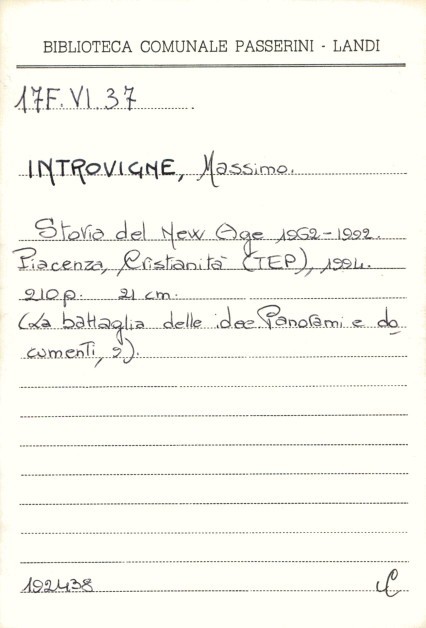 BIBLIOTECA COMUNALE PASSERINI - LANDI
17F.VI.37
INTROVIGNE, Massimo.
Storia del New Age 1962-1992.
Piacenza, Cristianità (TEP), 1994.
210 p. 21 cm.
(La battaglia delle idee. Panorami e do
cumenti, 2).
192438